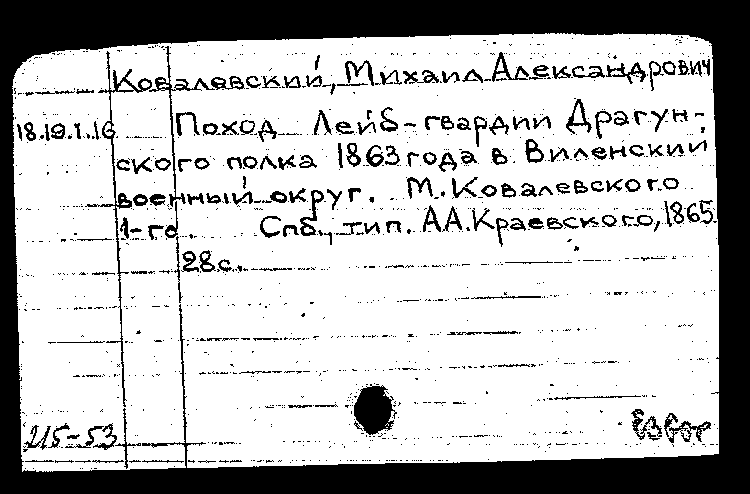 Ковалевский, Михаил Александрович
18.19.1.16 Поход Лейб-гвардии Драгун-
ского полка 1863 года в Виленский
военный округ. М. Ковалевского
1-го. Спб., тип. А.А.Краевского, 1865.
28с.
215-53